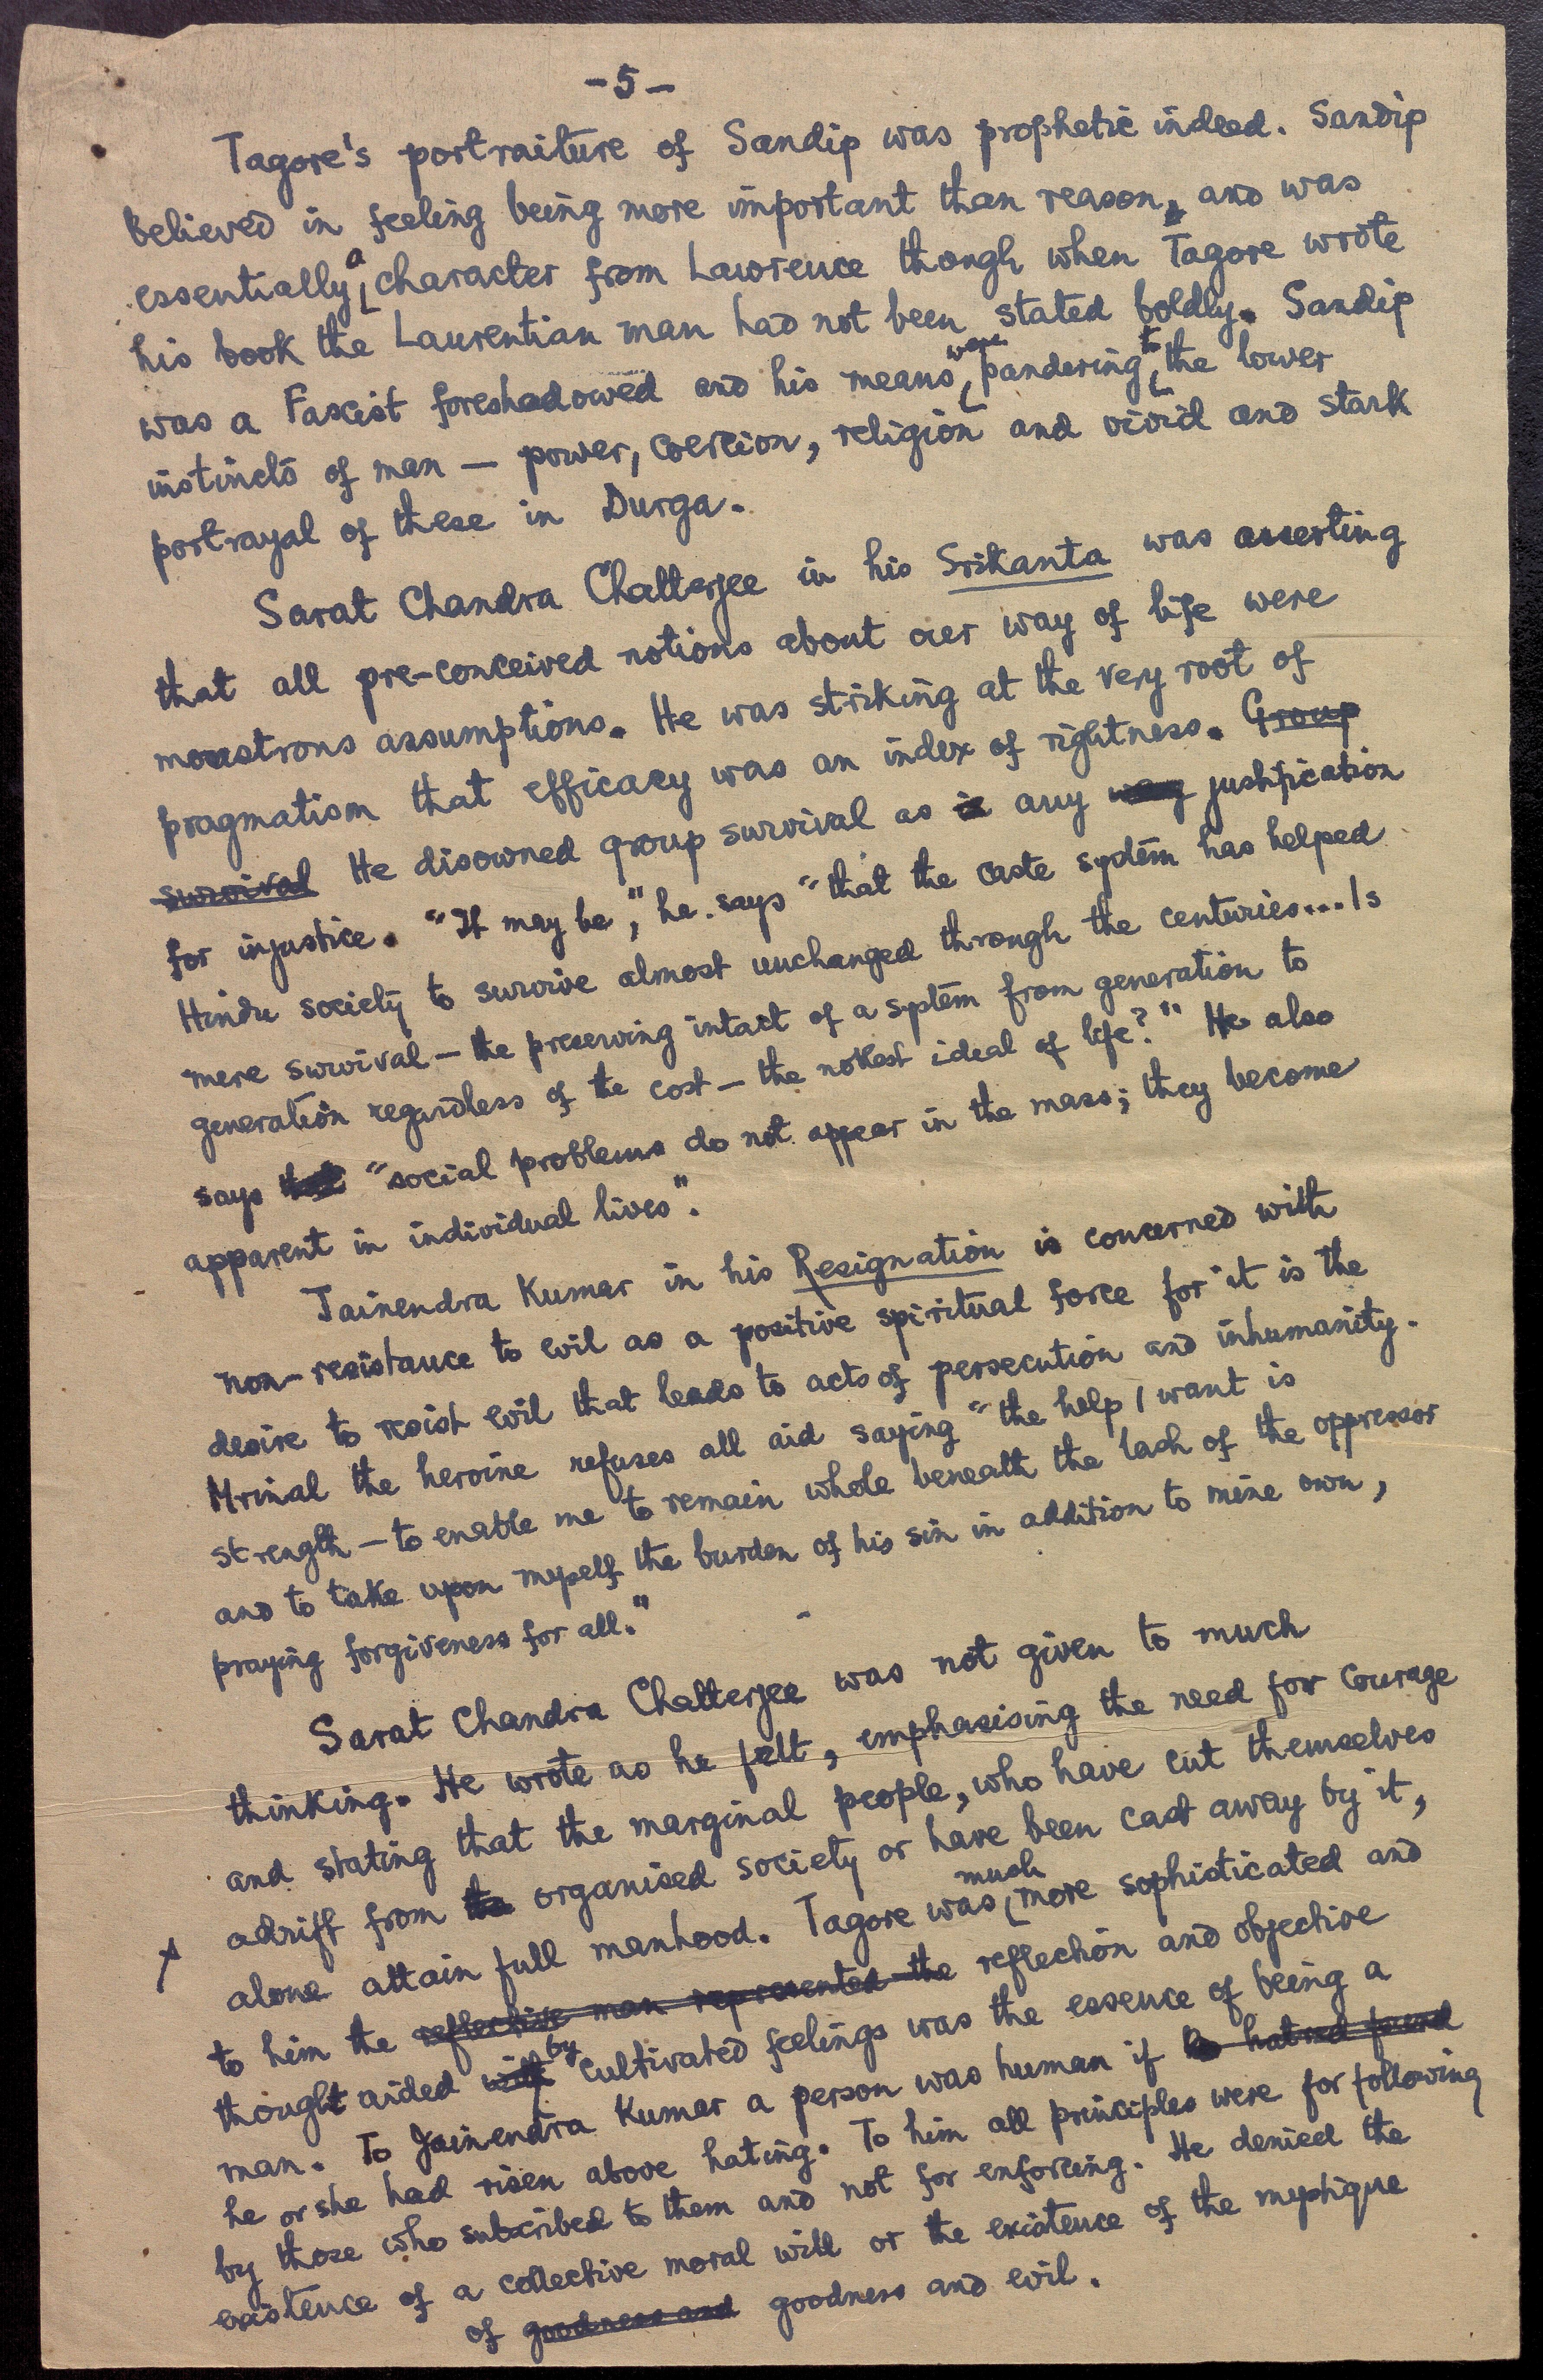 -5-
Tagore's portraiture of Sandip was prophetic indeed. Sandip
believed in feeling being more important than reason, and was
essentially a character from Lawrence though when Tagore wrote
his book the Laurentian man had not been stated boldly. Sandip
was a Fascist foreshadowed and his means were pandering to the lower
instincts of man — power, coercion, religion and vivid and stark
portrayal of these in Durga.
Sarat Chandra Chatterjee in his Srikanta was asserting
that all pre-conceived notions about our way of life were
monstrous assumptions. He was striking at the very root of
pragmatism that efficacy was an index of rightness. Group
survival He disowned group survival as is any way justification
for injustice. "It may be," he says "that the caste system has helped
Hindu society to survive almost unchanged through the centuries... Is
mere survival — the preserving intact of a system from generation to
generation regardless of the cost — the noblest ideal of life?" He also
says that "social problems do not appear in the mass; they become
apparent in individual lives".
Jainendra Kumar in his Resignation is concerned with
non-resistance to evil as a positive spiritual force for it is the
desire to resist evil that leads to acts of persecution and inhumanity.
Mrinal the heroine refuses all aid saying "the help I want is
strength — to enable me to remain whole beneath the lash of the oppressor
and to take upon myself the burden of his sin in addition to mine own,
praying forgiveness for all."
Sarat Chandra Chatterjee was not given to much
thinking. He wrote as he felt, emphasising the need for courage
and stating that the marginal people, who have cut themselves
adrift from the organised society or have been cast away by it,
alone attain full manhood. Tagore was much more sophisticated and
to him the reflective man represented the reflection and objective
thought aided with by cultivated feelings was the essence of being a
man. To Jainendra Kumar a person was human if he hatred found
he or she had risen above hating. To him all principles were for following
by those who subscribed to them and not for enforcing. He denied the
existence of a collective moral will or the existence of the mystique
of goodness and goodness and evil.